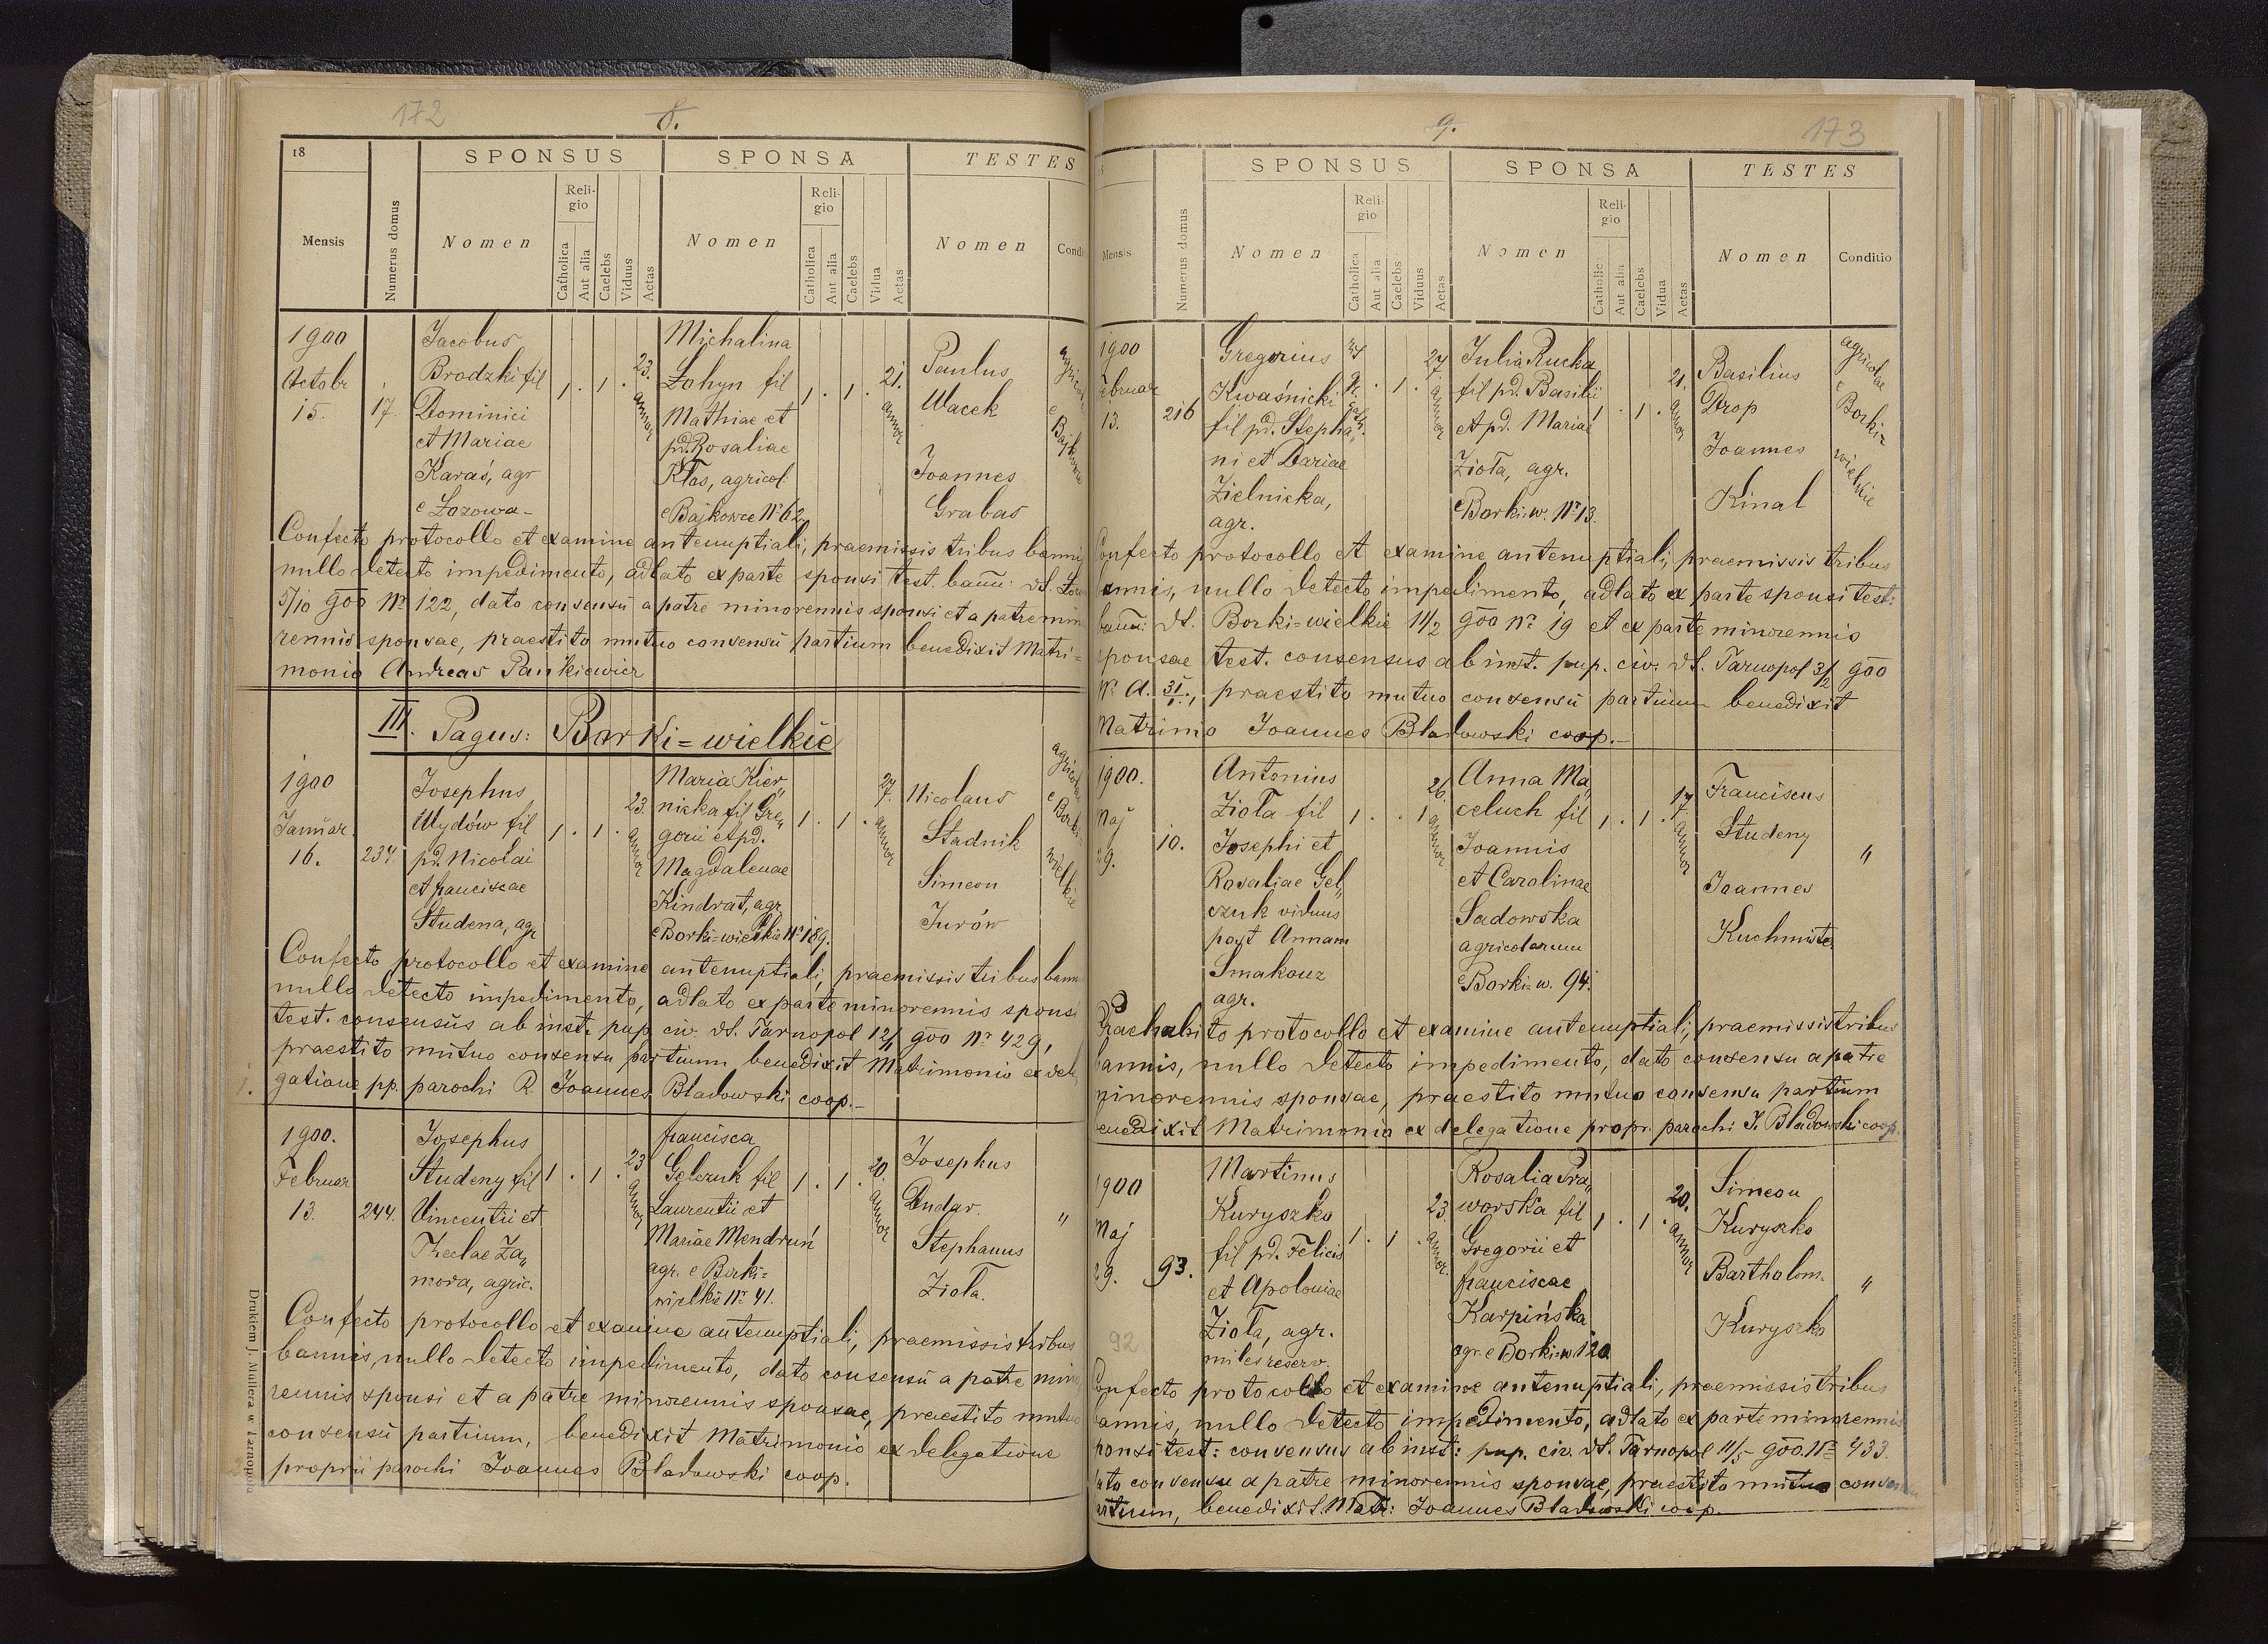 172
8.
18
SPONSUS
SPONSA
TESTES
Mensis
Numerus domus
Nomen
Religio
Catholica
Aut alia
Caelebs
Viduus
Aetas
Nomen
Religio
Catholica
Aut alia
Caelebs
Vidua
Aetas
Nomen
Condi
1900
Octobr
15.
17.
Jacobus
Brodzki fil
Dominici
et Mariae
Karaś, agr
e Łozowa-
1 . 1 .
23.
annor
Michalina
Łohyn fil
Mathiae et
pd. Rosaliae
Kłos, agricol.
e Bajkowce Nr 62
1 . 1 .
21.
annor
Paulus
Wacek
Joannes
Grabas
agricolae
e
Bajkowce
Confecto protocollo et examine antenuptiali, praemissis tribus bannis
nullo detecto impedimento, adlato ex parte sponsi test. bann: dt.
5/10 900 Nr 122, dato consensu a patre minorennis sponsi et a patre mino
rennis sponsae, praestito mutuo consensu partium benedixit Matri=
monio Andreas Pankiewicz
III. Pagus: Borki=wielkie
1900
Januar.
16.
234.
Josephus
Wydów fil
pd. Nicolai
et franciscae
Studena, agr
1 . 1 .
23.
annor
Maria Kier„
nicka fil Gre„
gorii et pd.
Magdalenae
Kindrat, agr
e Borki=wielkie Nr 189.
1 . 1 .
27.
annor
Nicolaus
Stadnik
Simeon
Jurów
agricolae
e
Borki=
wielkie
Confecto protocollo et examine antenuptiali, praemissis tribus bann
nullo detecto impedimento, adlato ex parte minorennis sponsi
test. consensus ab inst. pup. civ. dt. Tarnopol 12/1 900 Nr 429,
praestito mutuo consensu partium benedixit Matrimonio ex dele
1. gatione pp. parochi R. Joannes Bladowski coop.-
1900.
Februar
13.
244.
Josephus
Studeny fil
Vincentii et
Theclae Za„
mora, agric.
1 . 1 .
23
annor
francisca
Gelczuk fil
Laurentii et
Mariae Mendruń
agr. e Borki=
wielkie Nr 41.
1 . 1 .
20.
annor
Josephus
Dudar.
Stephanus
Zioła.
„
Confecto protocollo et examine antenuptiali, praemissis tribus
bannis, nullo detecto impedimento, dato consensu a patre mino
rennis sponsi et a patre minorennis sponsae, praestito mutuo
consensu partium, benedixit Matrimonio ex delegatione
proprii parochi Joannes Bladowski coop.
Drukiem J. Müllera w Tarnopolu
9.
173
SPONSUS
SPONSA
TESTES
Mensis
Numerus domus
Nomen
Religio
Catholica
Aut alia
Caelebs
Viduus
Aetas
Nomen
Religio
Catholica
Aut alia
Caelebs
Vidua
Aetas
Nomen
Conditio
1900
Februar
13.
216
Gregorius
Kwaśnicki
fil pd. Stepha„
ni et Dariae
Zielnicka,
agr.
. 1 .
27
annor
Julia Rucka
fil pd. Basilii
et pd. Mariae
Zioła, agr.
e Borki=w. Nr 13.
1 . 1 .
21.
annor
Basilius
Drop
Joannes
Kinal
agricolae
e
Borki=
wielkie
Confecto protocollo et examine antenuptiali, praemissis tribus
bannis, nullo detecto impedimento, adlato ex parte sponsi test:
bann: dt. Borki=wielkie 11/2 900 Nr 19 et ex parte minorennis
sponsae test. consensus ab inst. pup. civ. dt. Tarnopol 3/2 900
Nr A. 31/1., praestito mutuo consensu partium benedixit
Matrimo Joannes Bladowski coop.-
1900.
Maj
29.
10.
Antonius
Zioła fil
Josephi et
Rosaliae Gel„
czuk viduus
post Annam
Smakouz
agr.
1 . . 1
26
annor
Anna Ma„
celuch fil
Joannis
et Carolinae
Sadowska
agricolarum
e Borki=w. 94.
1 . 1 .
17
annor
Franciscus
Studeny
Joannes
Kuchmister
„
Praehabito protocollo et examine antenuptiali, praemissis tribus
bannis, nullo detecto impedimento, dato consensu a patre
minorennis sponsae, praestito mutuo consensu partium
benedixit Matrimonio ex delegatione propr. parochi J. Bladowski coop.
1900
Maj
29.
93.
92
Martinus
Kuryszko
fil pd. Felicis
et Apoloniae
Zioła, agr.
miles reserv.
1 . 1 .
23.
annor.
Rosalia Pra„
worska fil
Gregorii et
franciscae
Karpińska
agr. e Borki=w. 120
1 . 1 .
20.
annor
Simeon
Kuryszko
Bartholom.
Kuryszko
„
Confecto protocollo et examine antenuptiali, praemissis tribus
bannis, nullo detecto impedimento, adlato ex parte minorennis
sponsi test: consensus ab inst: pup. civ. dt. Tarnopol 11/5 900. Nr 433.
dato consensu a patre minorennis sponsae, praestito mutuo consensu
partium, benedixit Matr: Joannes Bladowski coop.